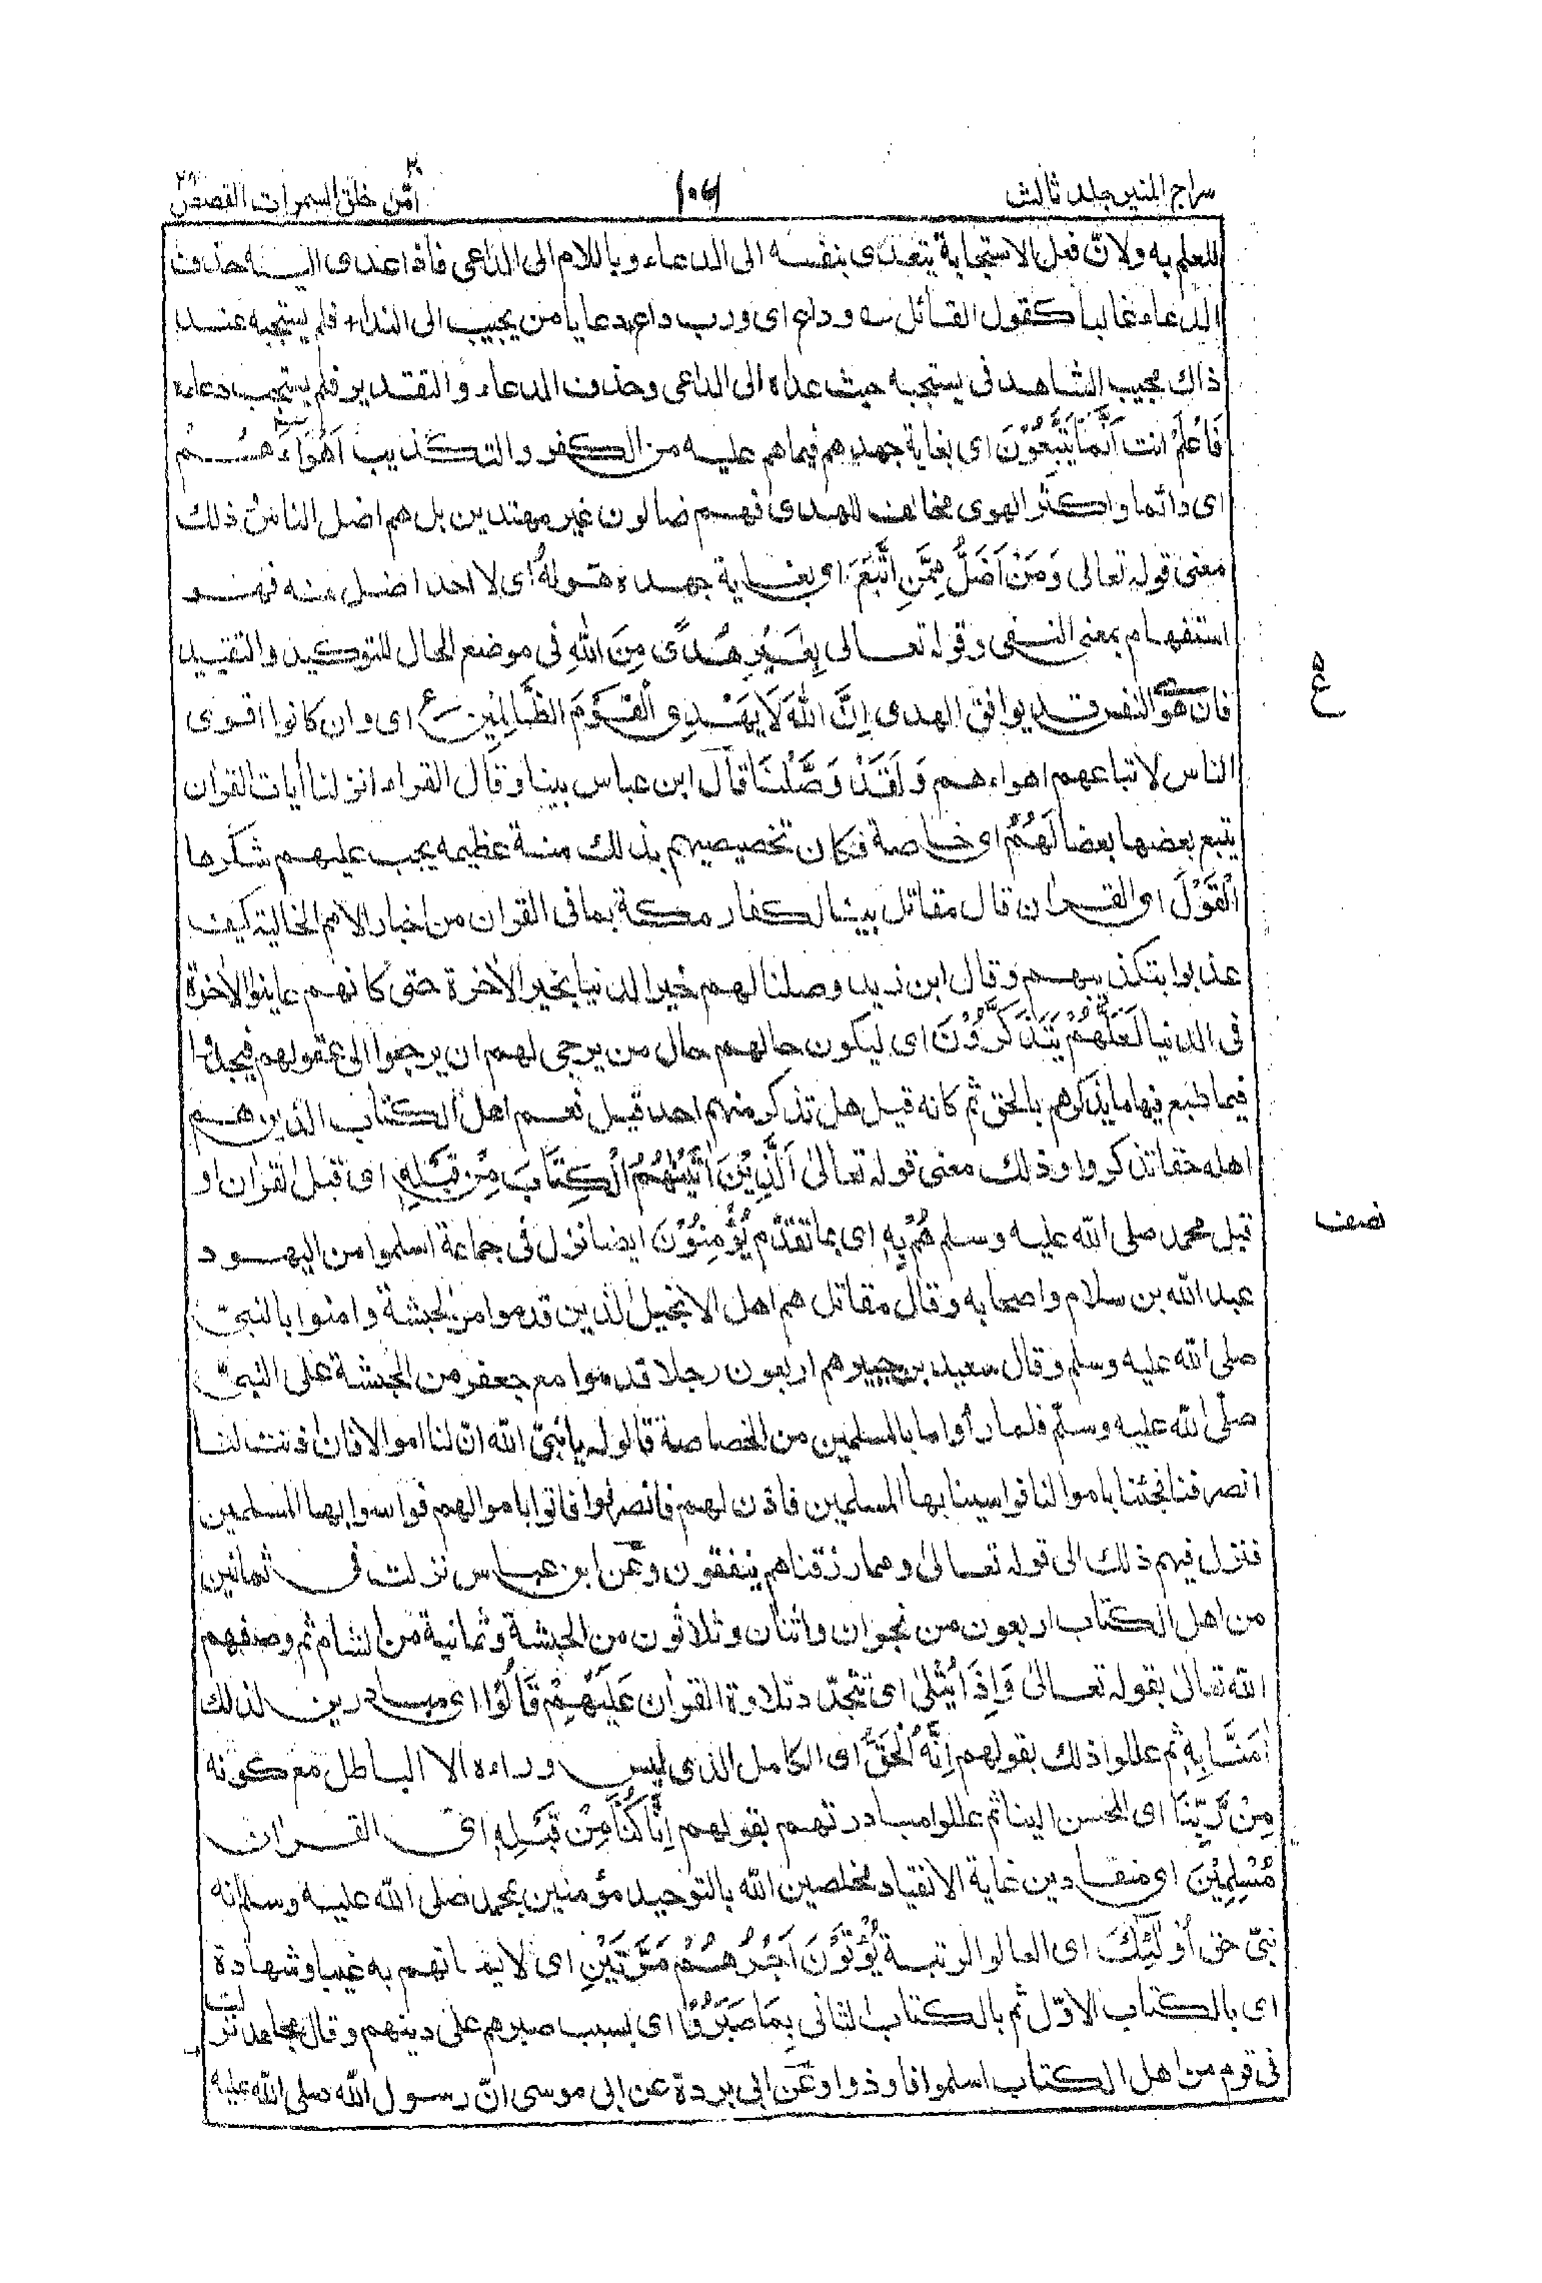 سراج المنير جلد ثالث
١٠٦
أمّن خلق السموات ٢٠ القصص ٢٨
للعلم به ولانّ فعل الاستجابة يتعدى بنفسه الى الدعاء وباللام الى الداعى فأذا عدى اليه حذف
الدعاء غالبا كقول القائل سه وداع اى ورب داع دعا يا من يجيب الى النداء فلم يستجبه عند
ذاك مجيب الشاهد فى يستجبه حيث عداه الى الداعى وحذف الدعاء والتقدير فلم يستجب دعاءه
فَاعْلَمْ انت اَنَّمَا يَتَّبِعُوْنَ اى بغاية جهدهم فيما هم عليه من الكفر والتكذيب اَهْوَاءَهُمْ
اى دائما واكثر الهوى مخالف للهدى فهم ضالون غير مهتدين بل هم اضل الناس ذلك
معنى قوله تعالى وَمَنْ اَضَلُّ مِمَّنِ اتَّبَعَ اى بغاية جهده هَوٰىهُ اى لا احد اضل منه فهو
استفهام بمعنى النفى وقوله تعالى بِغَيْرِ هُدًى مِنَ اللهِ فى موضع الحال للتوكيد والتقييد
فان هوى النفس قد يوافق الهدى اِنَّ اللهَ لَا يَهْدِى الْقَوْمَ الظّٰلِمِيْنَ ع اى وان كانوا اقوى
الناس لاتباعهم اهواءهم وَلَقَدْ وَصَّلْنَا قال ابن عباس بينا وقال الفراء انزلنا أيات القران
يتبع بعضها بعضا لَهُمُ اى خاصة فكان تخصيصهم بذلك منة عظيمه يجب عليهم شكرها
الْقَوْلَ اى القران قال مقاتل بينا لكفار مكة بما فى القران من اخبار الامم الخالية كيف
عذبوا بتكذيبهم وقال ابن زيد وصلنا لهم خير الدنيا بخير الأخرة حتى كانهم عاينوا الأخرة
فى الدنيا لَعَلَّهُمْ يَتَذَكَّرُوْنَ اى ليكون حالهم حال من يرجى لهم ان يرجعوا الى عقولهم فيجدوا
فيما طبع فيها ما يذكرهم بالحق ثم كانه قيل هل تذكر منهم احد قيل نعم اهل الكتاب الذين هم
اهله حقا تذكروا وذلك معنى قوله تعالى اَلَّذِيْنَ اٰتَيْنٰهُمُ الْكِتَابَ مِنْ قَبْلِهٖ اى قبل القران او
قبل محمد صلى الله عليه وسلم هُمْ بِهٖ اى بما تقدم يُؤْمِنُوْنَ ايضا نزل فى جماعة اسلموا من اليهود
عبد الله بن سلام واصحابه وقال مقاتل هم اهل الانجيل الذين قدموا من الحبشة وامنوا بالنبىّ
صلى الله عليه وسلم وقال سعيد بن جبير هم اربعون رجلا قدموا مع جعفر من الحبشة على النبىّ
صلّى الله عليه وسلّم فلما رأوا ما بالمسلمين من الخصاصة قالوا له يا نبىّ الله انّ لنا اموالا فان اذنت لنا
انصرفنا فجئنا باموالنا فواسينا بها المسلمين فاذن لهم فانصرفوا فاتوا باموالهم فواسوا بها المسلمين
فنزل فيهم ذلك الى قوله تعالى ومما رزقناهم ينفقون وعن ابن عباس نزلت فى ثمانين
من اهل الكتاب اربعون من نجران واثنان وثلاثون من الحبشة وثمانية من الشام ثم وصفهم
الله تعالى بقوله تعالى وَاِذَا يُتْلٰى اى تتجدّد تلاوة القران عَلَيْهِمْ قَالُوْا اى مبادرين لذلك
اٰمَنَّا بِهٖ ثم عللوا ذلك بقولهم اِنَّهُ الْحَقُّ اى الكامل الذى ليس وراءه الا الباطل مع كونه
مِنْ رَّبِّنَا اى المحسن الينا ثم عللوا مبادرتهم بقولهم اِنَّا كُنَّا مِنْ قَبْلِهٖ اى القران
مُسْلِمِيْنَ اى منقادين غاية الانقياد مخلصين الله بالتوحيد مؤمنين بمحمد صلى الله عليه وسلم انه
نبىّ حق اُولٰٓئِكَ اى العالوا لرتبة يُؤْتَوْنَ اَجْرَهُمْ مَّرَّتَيْنِ اى لايمانهم به غيبا وشهادة
اى بالكتاب الاوّل ثم بالكتاب الثانى بِمَا صَبَرُوْا اى بسبب صبرهم على دينهم وقال مجاهد نزلت
فى قوم من اهل الكتاب اسلموا فاوذوا وعن ابى بردة عن ابى موسى انّ رسول الله صلى الله عليه
ع
نصف